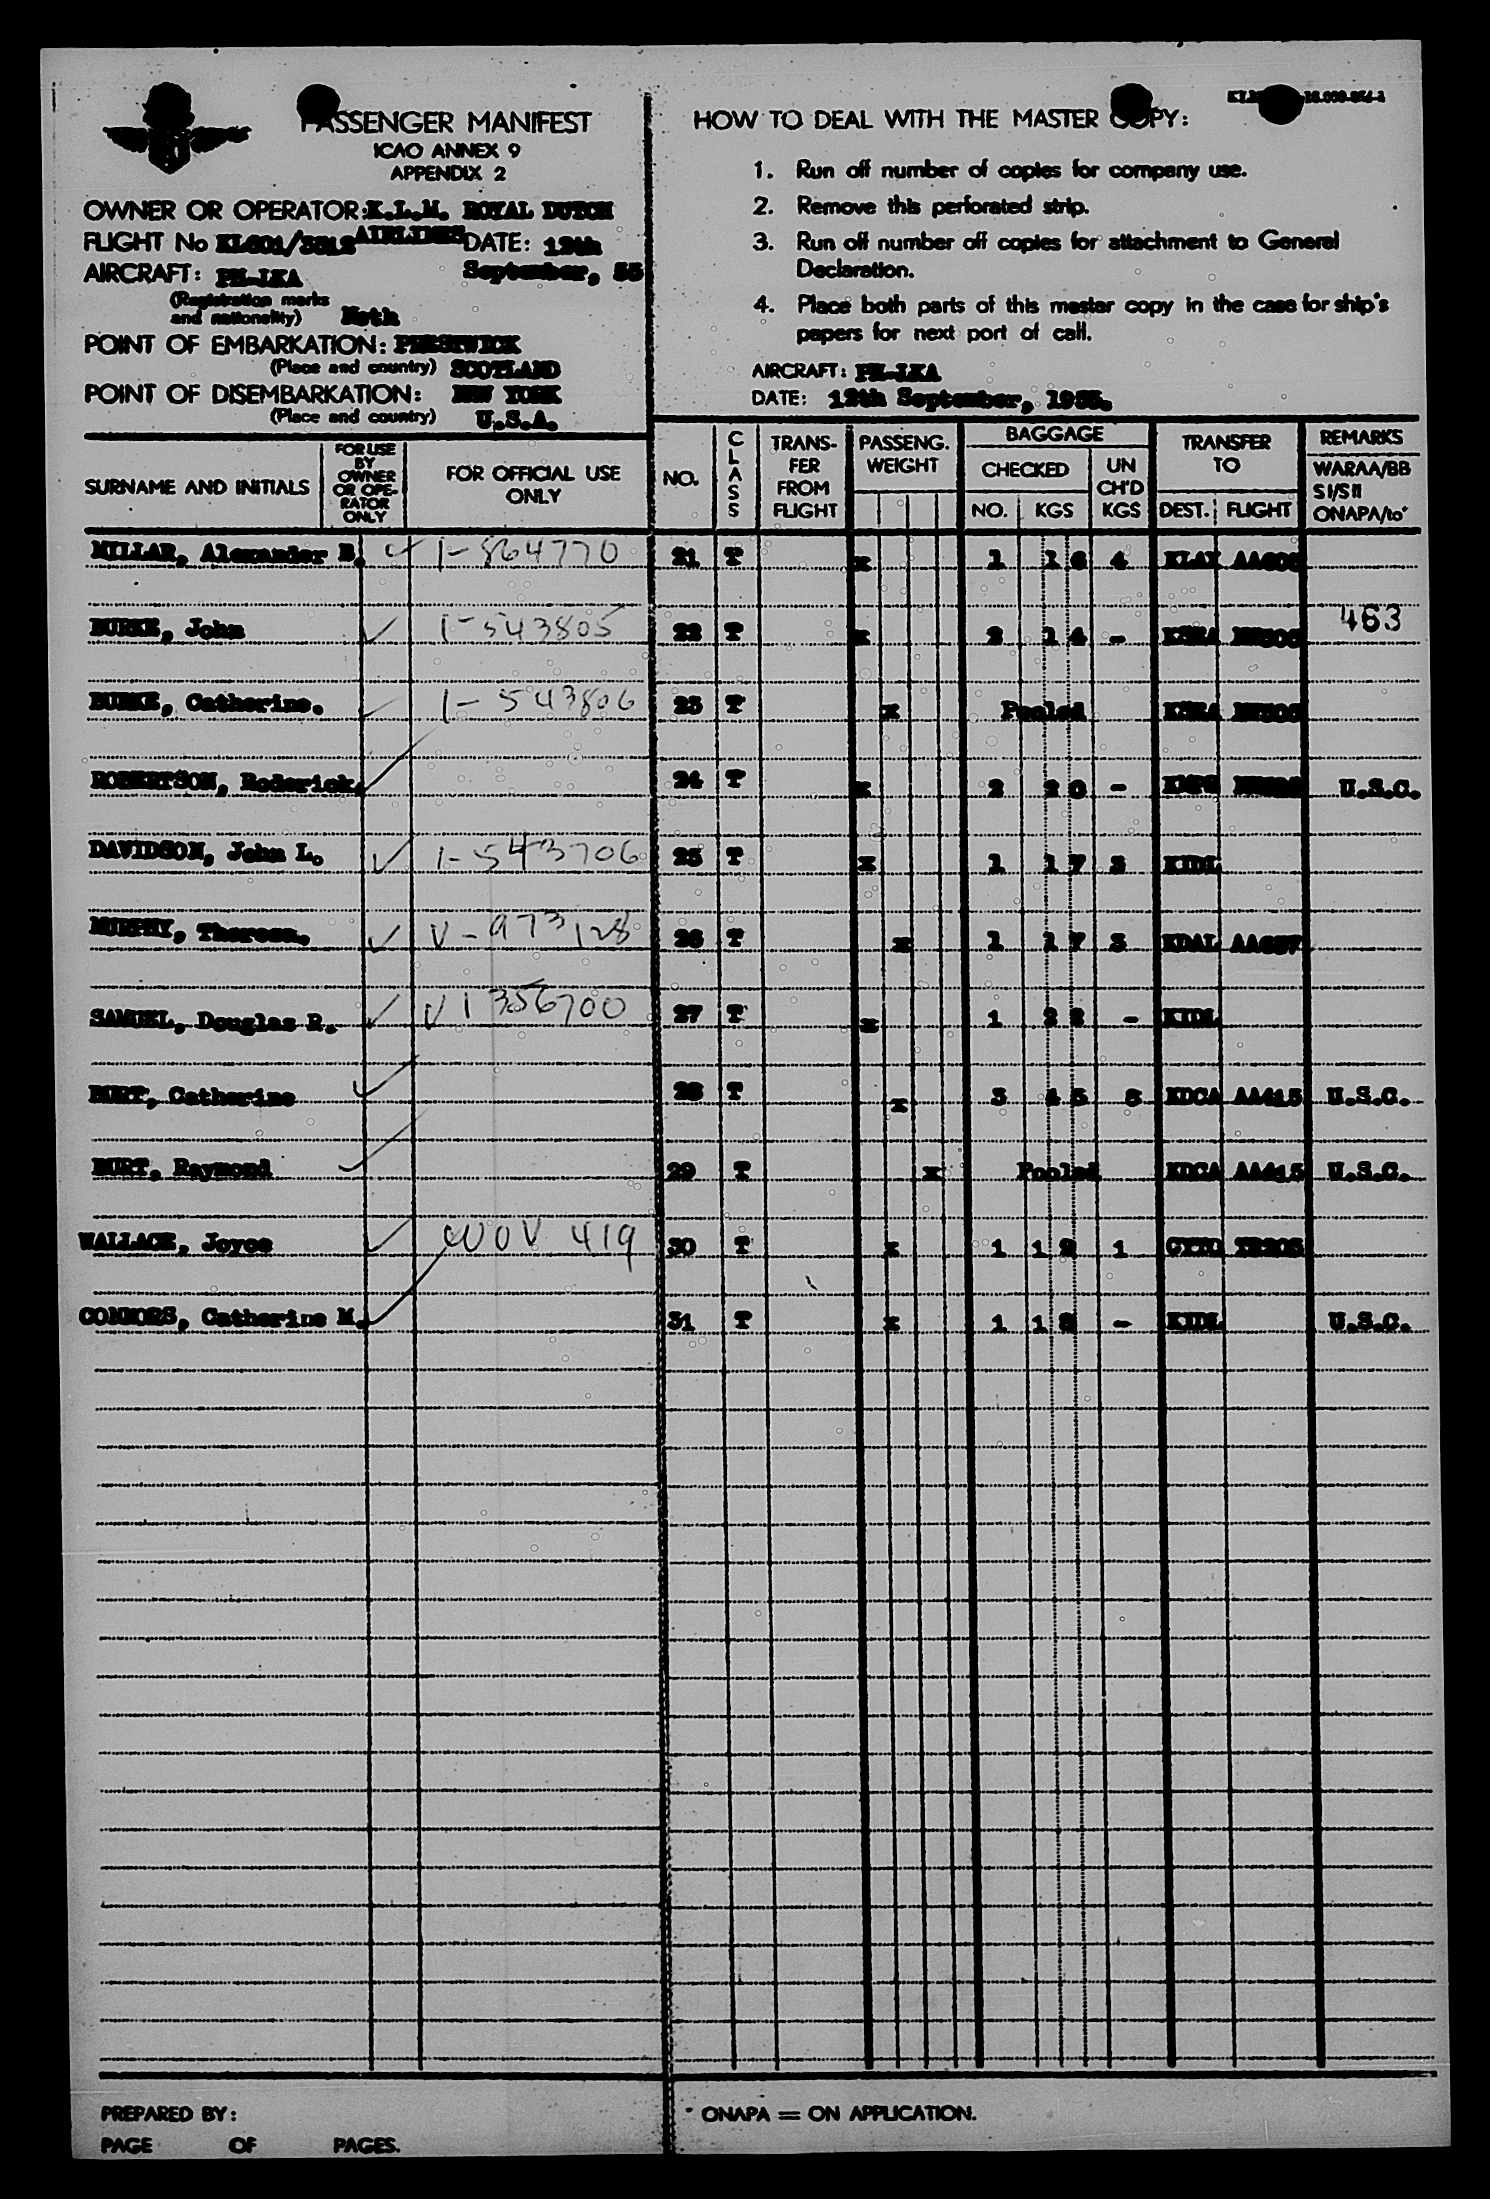 PASSENGER MANIFEST
ICAO ANNEX 9
APPENDIX 2
OWNER OR OPERATOR: K.L.M. ROYAL DUTCH
AIRLINES
FLIGHT No KL601/3312 DATE: 12th
September, 55
AIRCRAFT: PH-LKA
(Registration marks
and nationality) Neth
POINT OF EMBARKATION: PRESTWICK
(Place and country) SCOTLAND
POINT OF DISEMBARKATION: NEW YORK
(Place and country) U.S.A.
HOW TO DEAL WITH THE MASTER COPY:
1. Run off number of copies for company use.
2. Remove this perforated strip.
3. Run off number off copies for attachment to General
Declaration.
4. Place both parts of this master copy in the case for ship's
papers for next port of call.
AIRCRAFT: PH-LKA
DATE: 12th September, 1955.
SURNAME AND INITIALS
FOR USE
BY
OWNER
OR OPE-
RATOR
ONLY
FOR OFFICIAL USE
ONLY
NO.
CLASS
TRANS-
FER
FROM
FLIGHT
PASSENG.
WEIGHT
BAGGAGE
CHECKED
NO. KGS
UN
CH'D
KGS
TRANSFER
TO
DEST. FLIGHT
REMARKS
WARAA/BB
SI/SII
ONAPA/to*
MILLAR, Alexander B. ✓ 1-864770 21 T x 1 16 4 KLAX
BURKE, John ✓ 1-543805 22 T x 2 14 - 463
BURKE, Catherine. ✓ 1-543806 23 T x Pooled
ROBERTSON, Roderick. ✓ 24 T x 2 20 - U.S.C.
DAVIDSON, John L. ✓ 1-543706 25 T x 1 17 3 KIDL
MURPHY, Theresa. ✓ V-973128 26 T x 1 17 3 KDAL AA657
SAMUEL, Douglas R. ✓ V1356700 27 T x 1 22 - KIDL
BURT, Catherine ✓ 28 T x 3 45 8 KDCA AA415 U.S.C.
BURT, Raymond ✓ 29 T x Pooled KDCA AA415 U.S.C.
WALLACE, Joyce ✓ WOV 419 30 T x 1 12 1
CONNORS, Catherine M. ✓ 31 T x 1 18 - KIDL U.S.C.
PREPARED BY:
PAGE OF PAGES.
* ONAPA = ON APPLICATION.